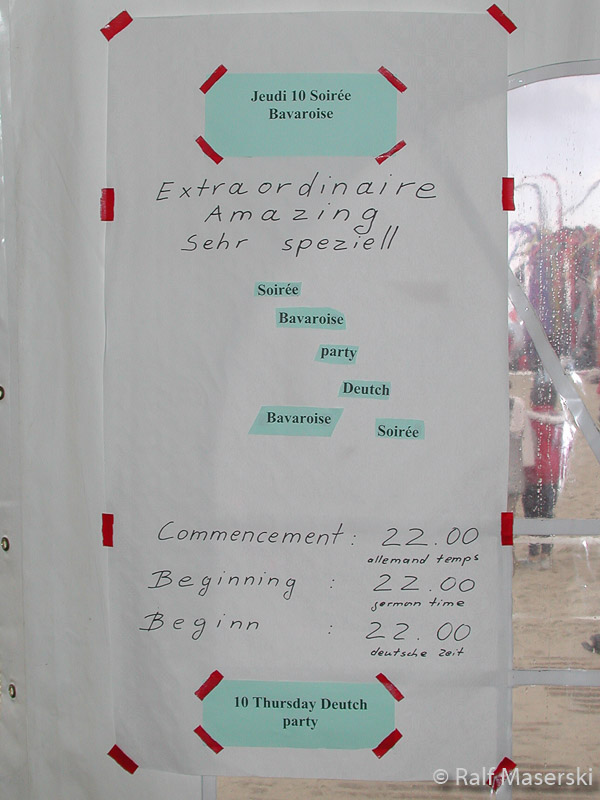 Jeudi 10 Soirée
Bavaroise
Extraordinaire
Amazing
Sehr speziell
Soirée
Bavaroise
party
Deutch
Bavaroise
Soirée
Commencement : 22.00
allemand temps
Beginning : 22.00
german time
Beginn : 22.00
deutsche Zeit
10 Thursday Deutch
party
© Ralf Maserski